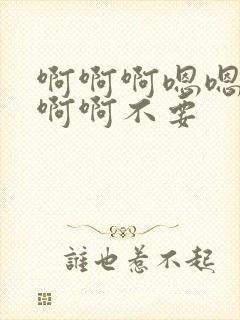 啊啊啊嗯嗯
啊啊不要
誰也惹不起